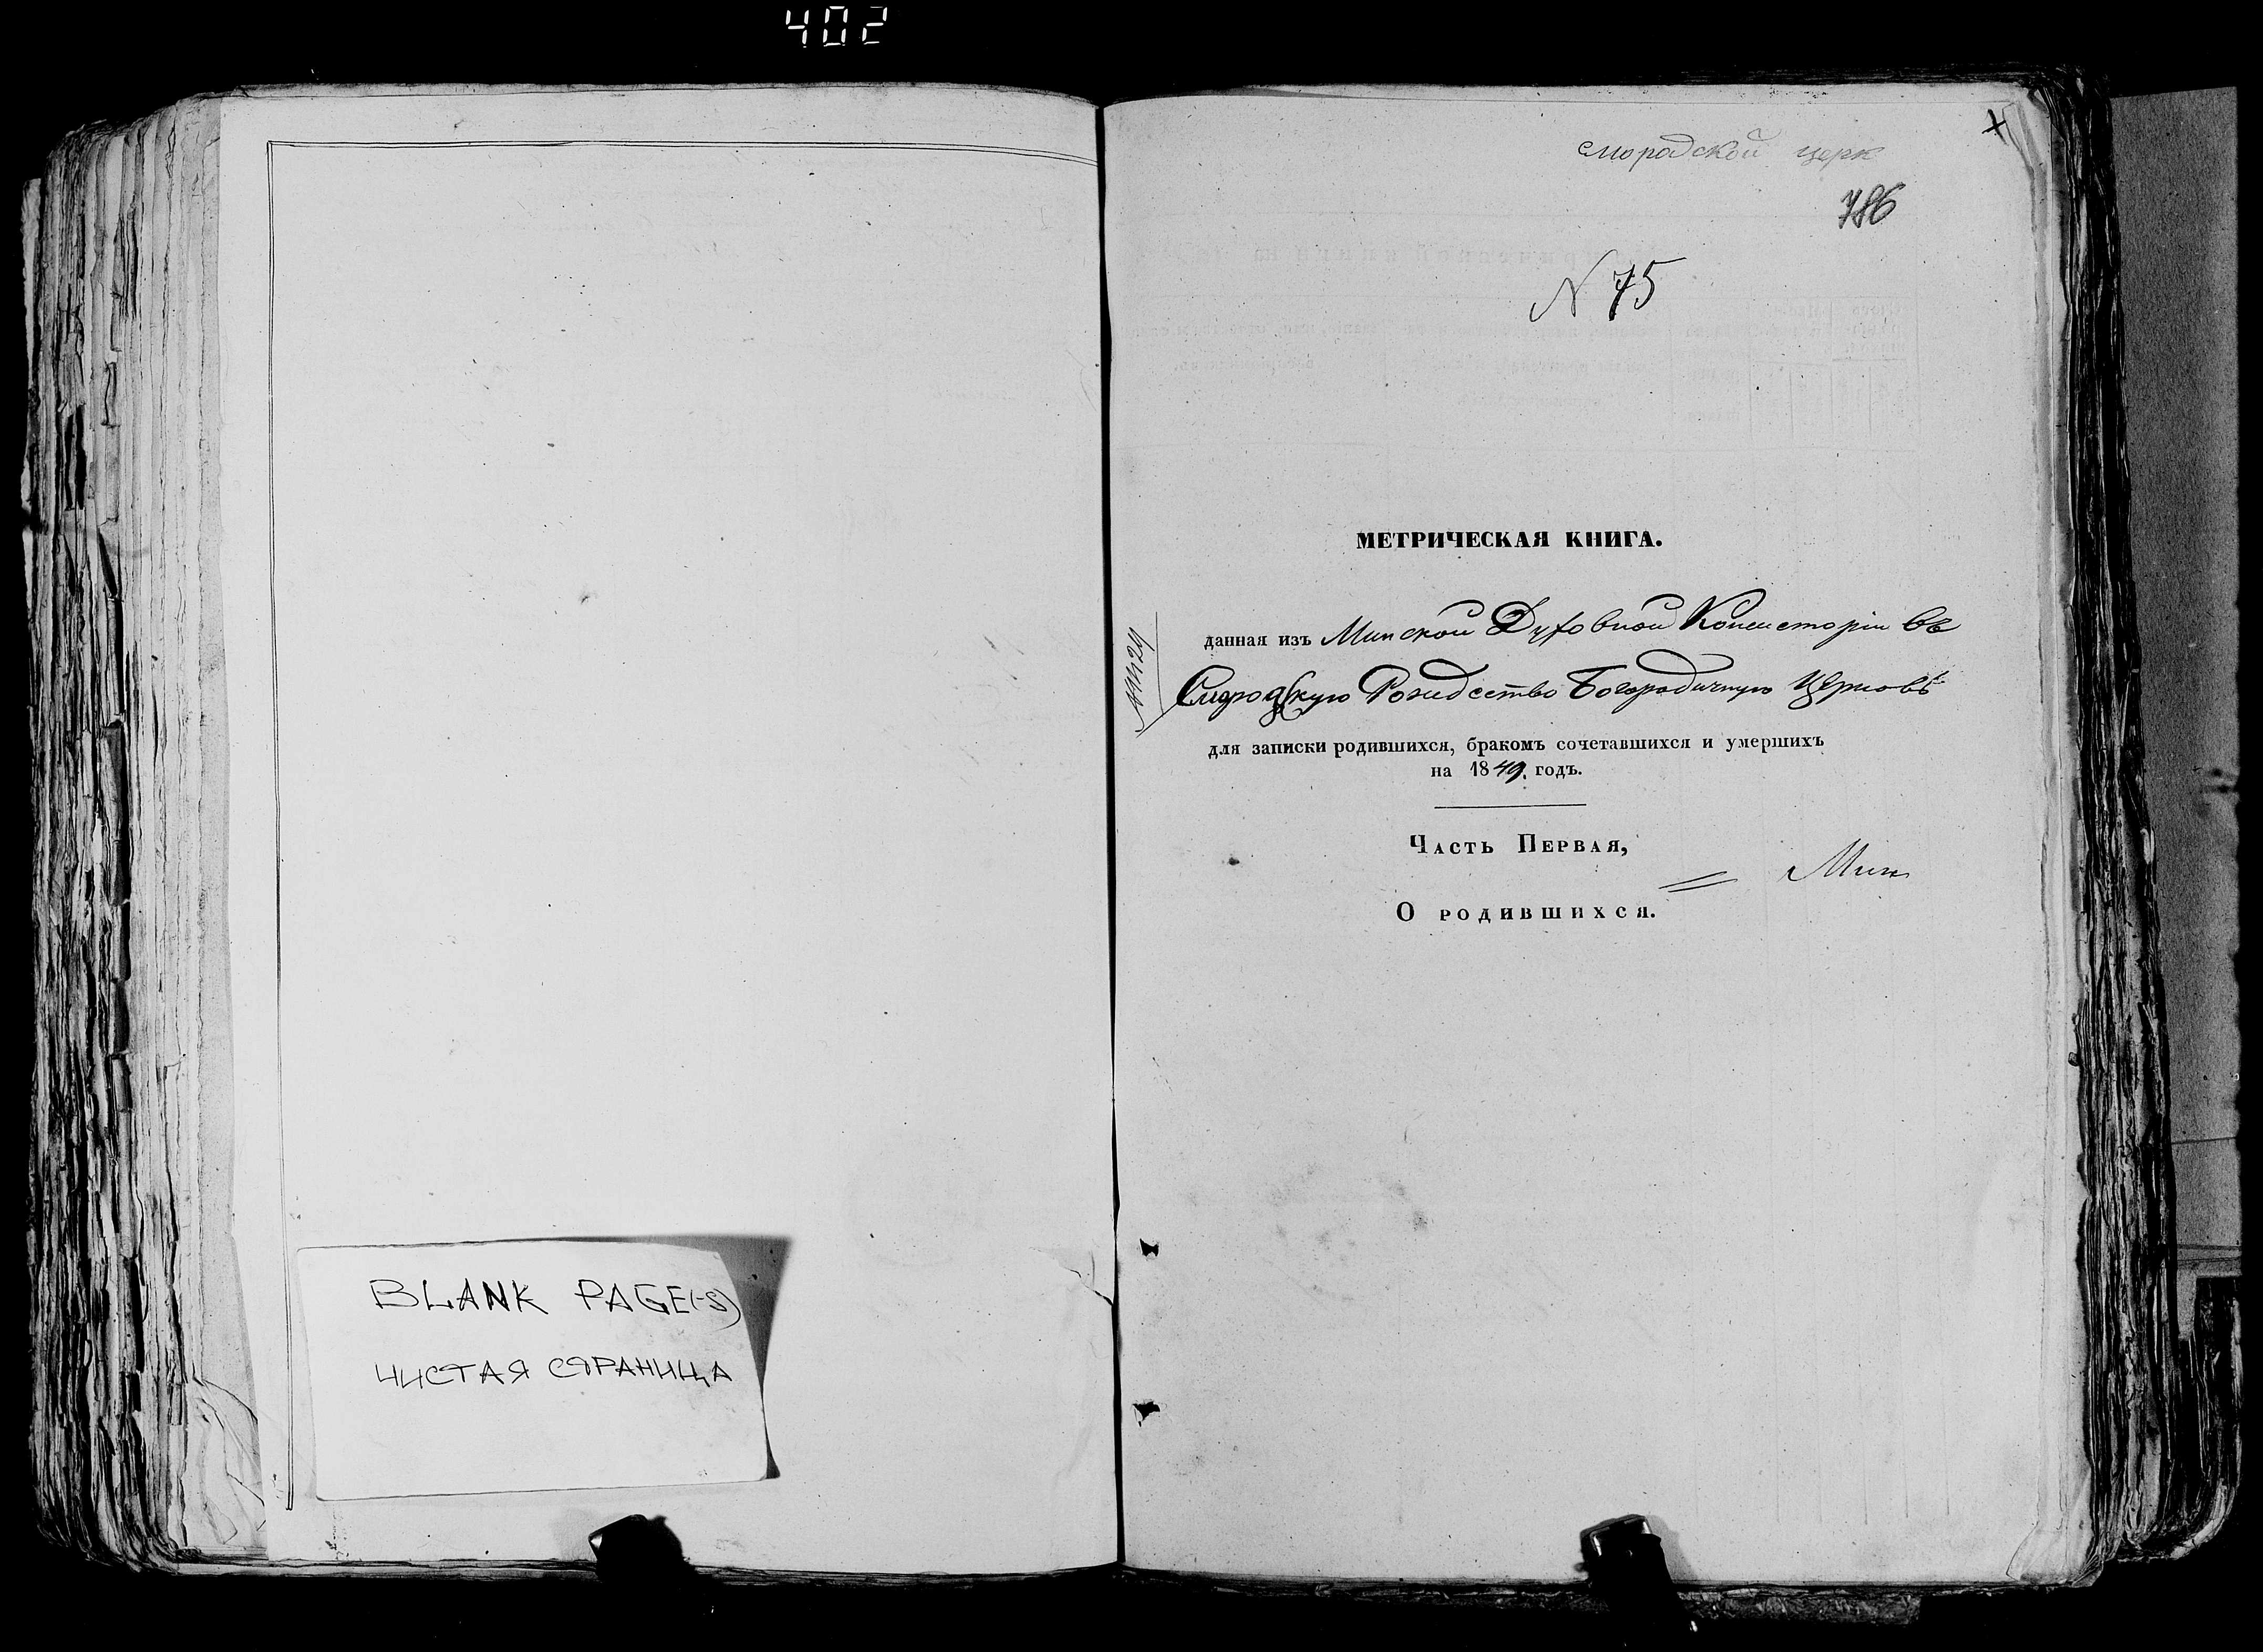 402
BLANK PAGE(-S)
ЧИСТАЯ СТРАНИЦА
х
сморадской церк
786
N 75
МЕТРИЧЕСКАЯ КНИГА.
данная изъ Минской Духовной Консисторіи въ
Рождество Богородичную Церковь
для записки родившихся, бракомъ сочетавшихся и умершихъ
на 1849. годъ.
Часть Первая,
Мин
О родившихся.